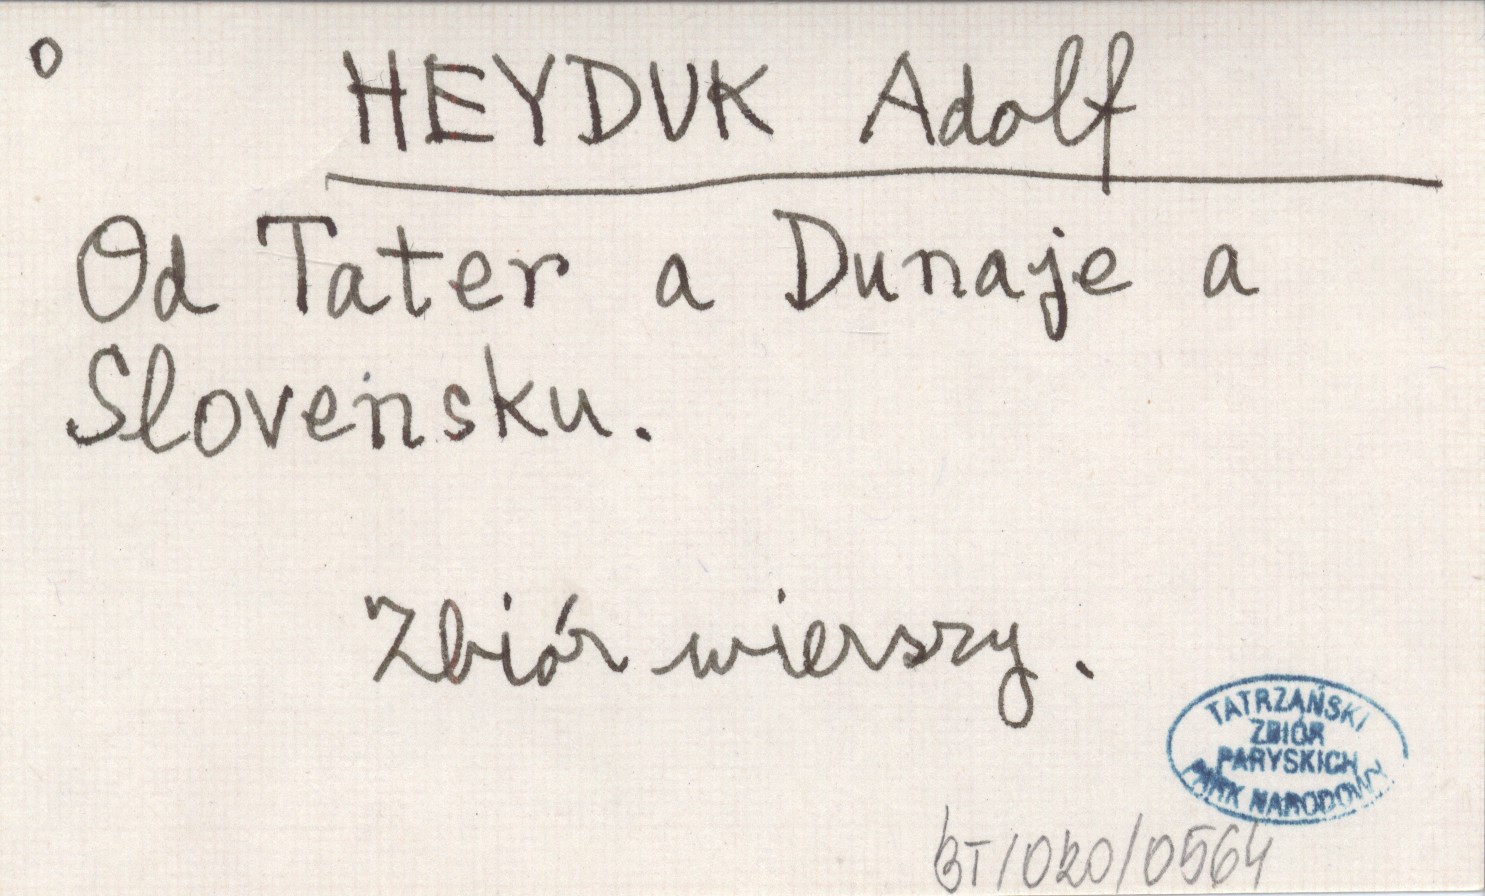 o
HEYDUK Adolf
Od Tater a Dunaje a
Slovensku.
Zbiór wierszy.
TATRZAŃSKI
ZBIÓR
PARYSKICH
PARK NARODOWY
BT/020/0564